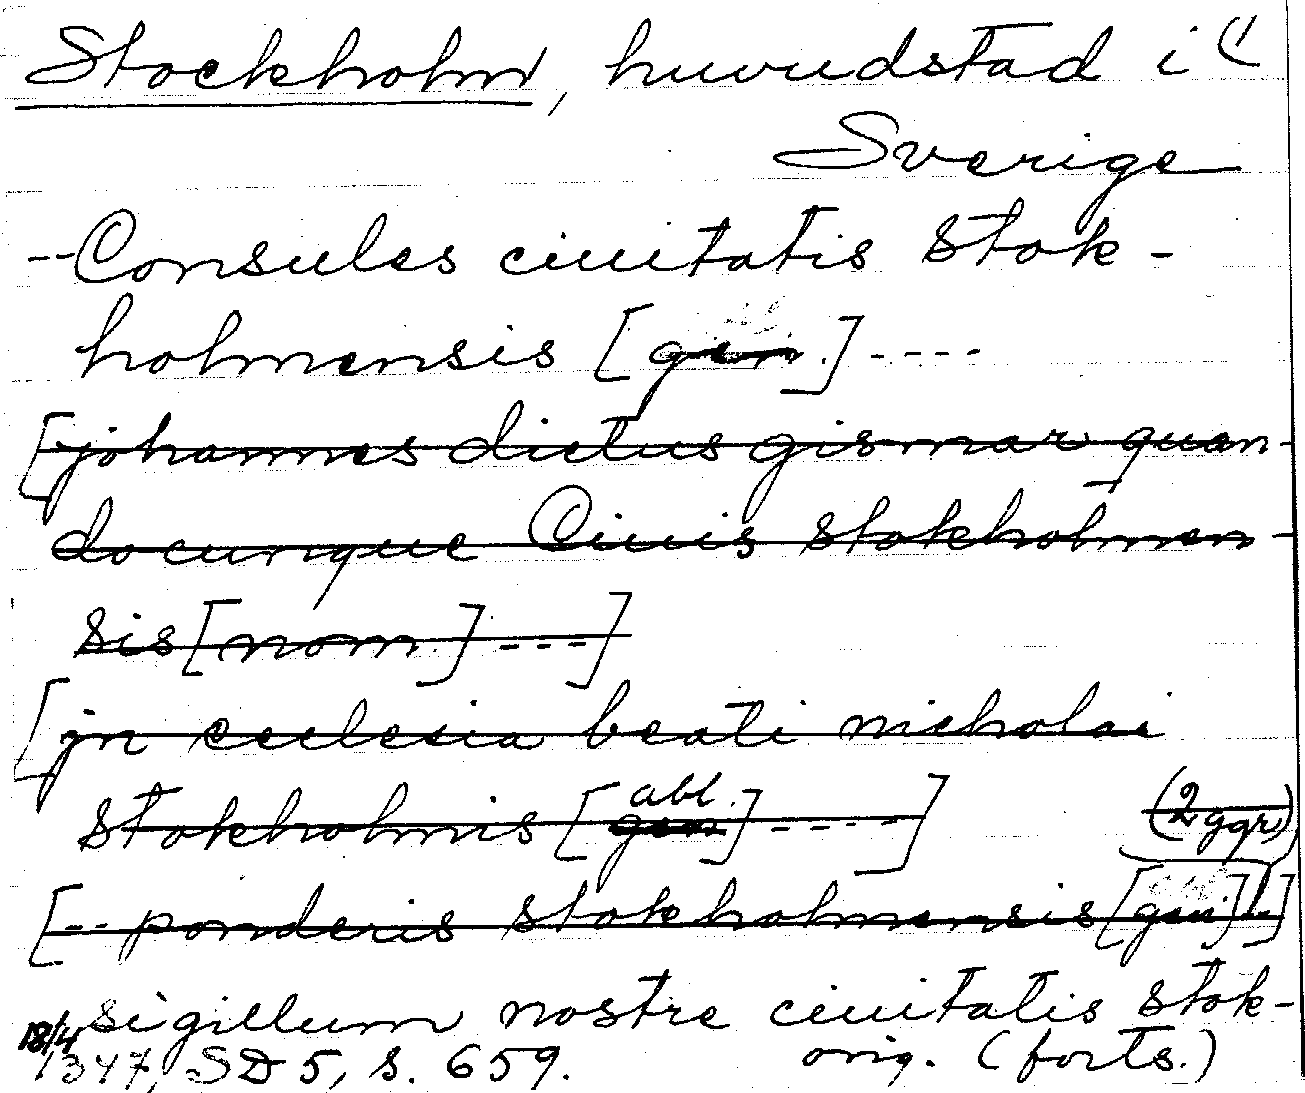 Stockholm, huvudstad i (/
Sverige
--Consules ciuitatis stok-
holmensis [gen.]----
[johannes dictus gismar quan-
docunque Ciuis stokholmen-
sis [nom.] ---]
[jn ecclesia beati nicholai
stokholmis [gen abl.] ----]
(2 ggr)
[-- ponderis stokholmensis [gen.]--]
sigillum nostre ciuitatis stok-
18/4
1347, SD 5, s. 659. orig. (forts.)